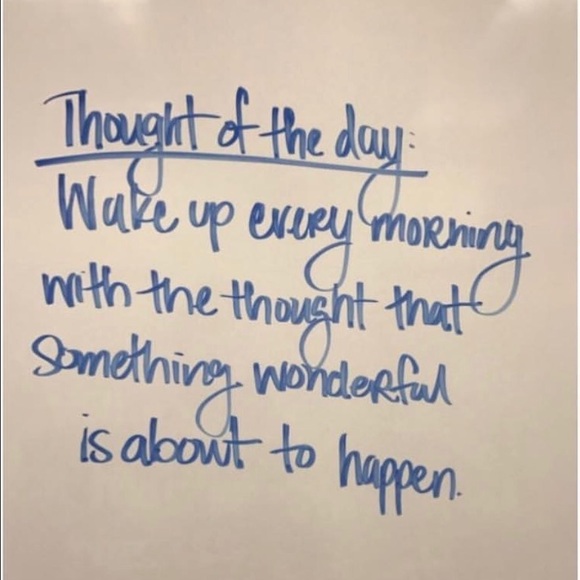 Thought of the day:
Wake up every morning
with the thought that
something wonderful
is about to happen.